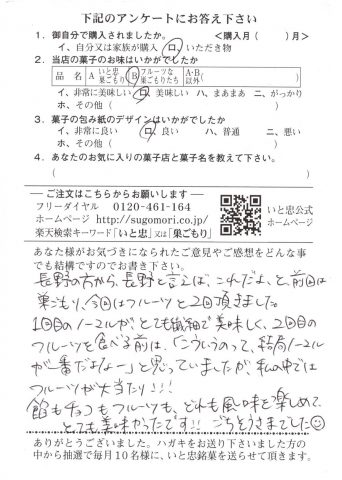 下記のアンケートにお答え下さい
1．御自分で購入されましたか。　＜購入月（　　）月＞
イ、自分又は家族が購入　ロ、いただき物
2．当店の菓子のお味はいかがでしたか
品　名　A いと忠巣ごもり　B フルーツな巣ごもりたち　A・B以外（　　　）
イ、非常に美味しい　ロ、美味しい　ハ、まあまあ　ニ、がっかり
ホ、その他（　　　）
3．菓子の包み紙のデザインはいかがでしたか
イ、非常に良い　ロ、良い　ハ、普通　ニ、悪い
ホ、その他（　　　）
4．あなたのお気に入りの菓子店と菓子名を教えて下さい。
（　　　）
―ご注文はこちらからお願いします―
フリーダイヤル　0120-461-164
ホームページ　http://sugomori.co.jp/
楽天検索キーワード「いと忠」又は「巣ごもり」
いと忠公式
ホームページ
あなた様がお気づきになられたご意見やご感想をどんな事
でも結構ですのでお書き下さい。
長野の方から、長野と言えば、これだよ、と、前回は
巣ごもり、今回はフルーツと2回頂きました。
1回目のノーマルが、とても繊細で美味しく、2回目の
フルーツを食べる前は、「こういうのって、結局ノーマル
が一番だよなー」と思っていましたが、私の中では
フルーツが大当たり!!!
餡もチョコもフルーツも、どれも風味を楽しめて、
とても美味かったです!! ごちそうさまでした
ありがとうございました。ハガキをお送り下さいました方の
中から抽選で毎月10名様に、いと忠銘菓を送らせて頂きます。